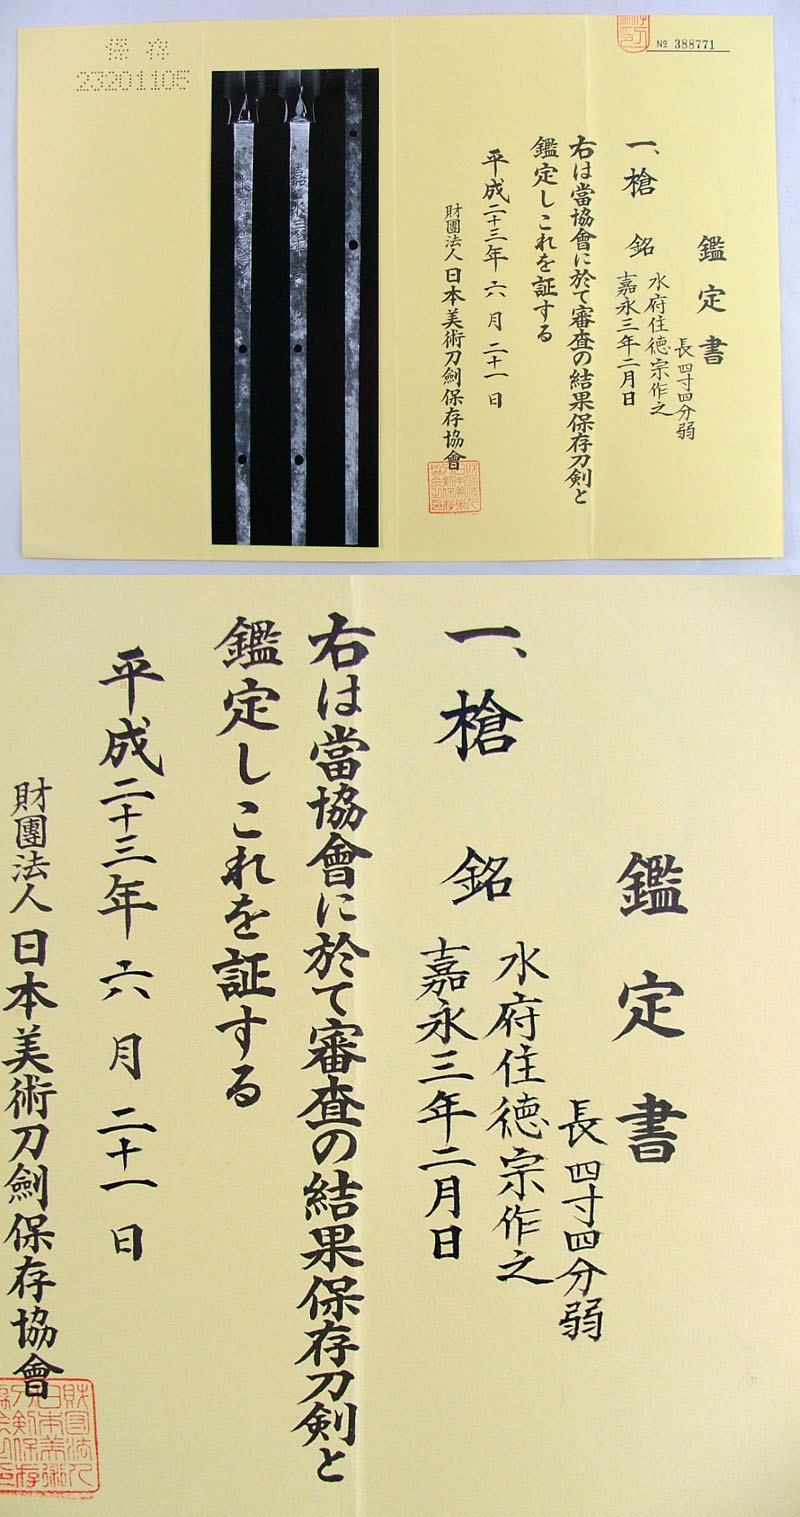 保存
23201105
№ 388771
鑑定書
長四寸四分弱
一、槍 銘 水府住徳宗作之
嘉永三年二月日
右は當協會に於て審査の結果保存刀剣と
鑑定しこれを証する
平成二十三年六月二十一日
財團法人日本美術刀劍保存協會
嘉永三年
鑑定書
長四寸四分弱
一、槍 銘 水府住徳宗作之
嘉永三年二月日
右は當協會に於て審査の結果保存刀剣と
鑑定しこれを証する
平成二十三年六月二十一日
財團法人日本美術刀劍保存協會